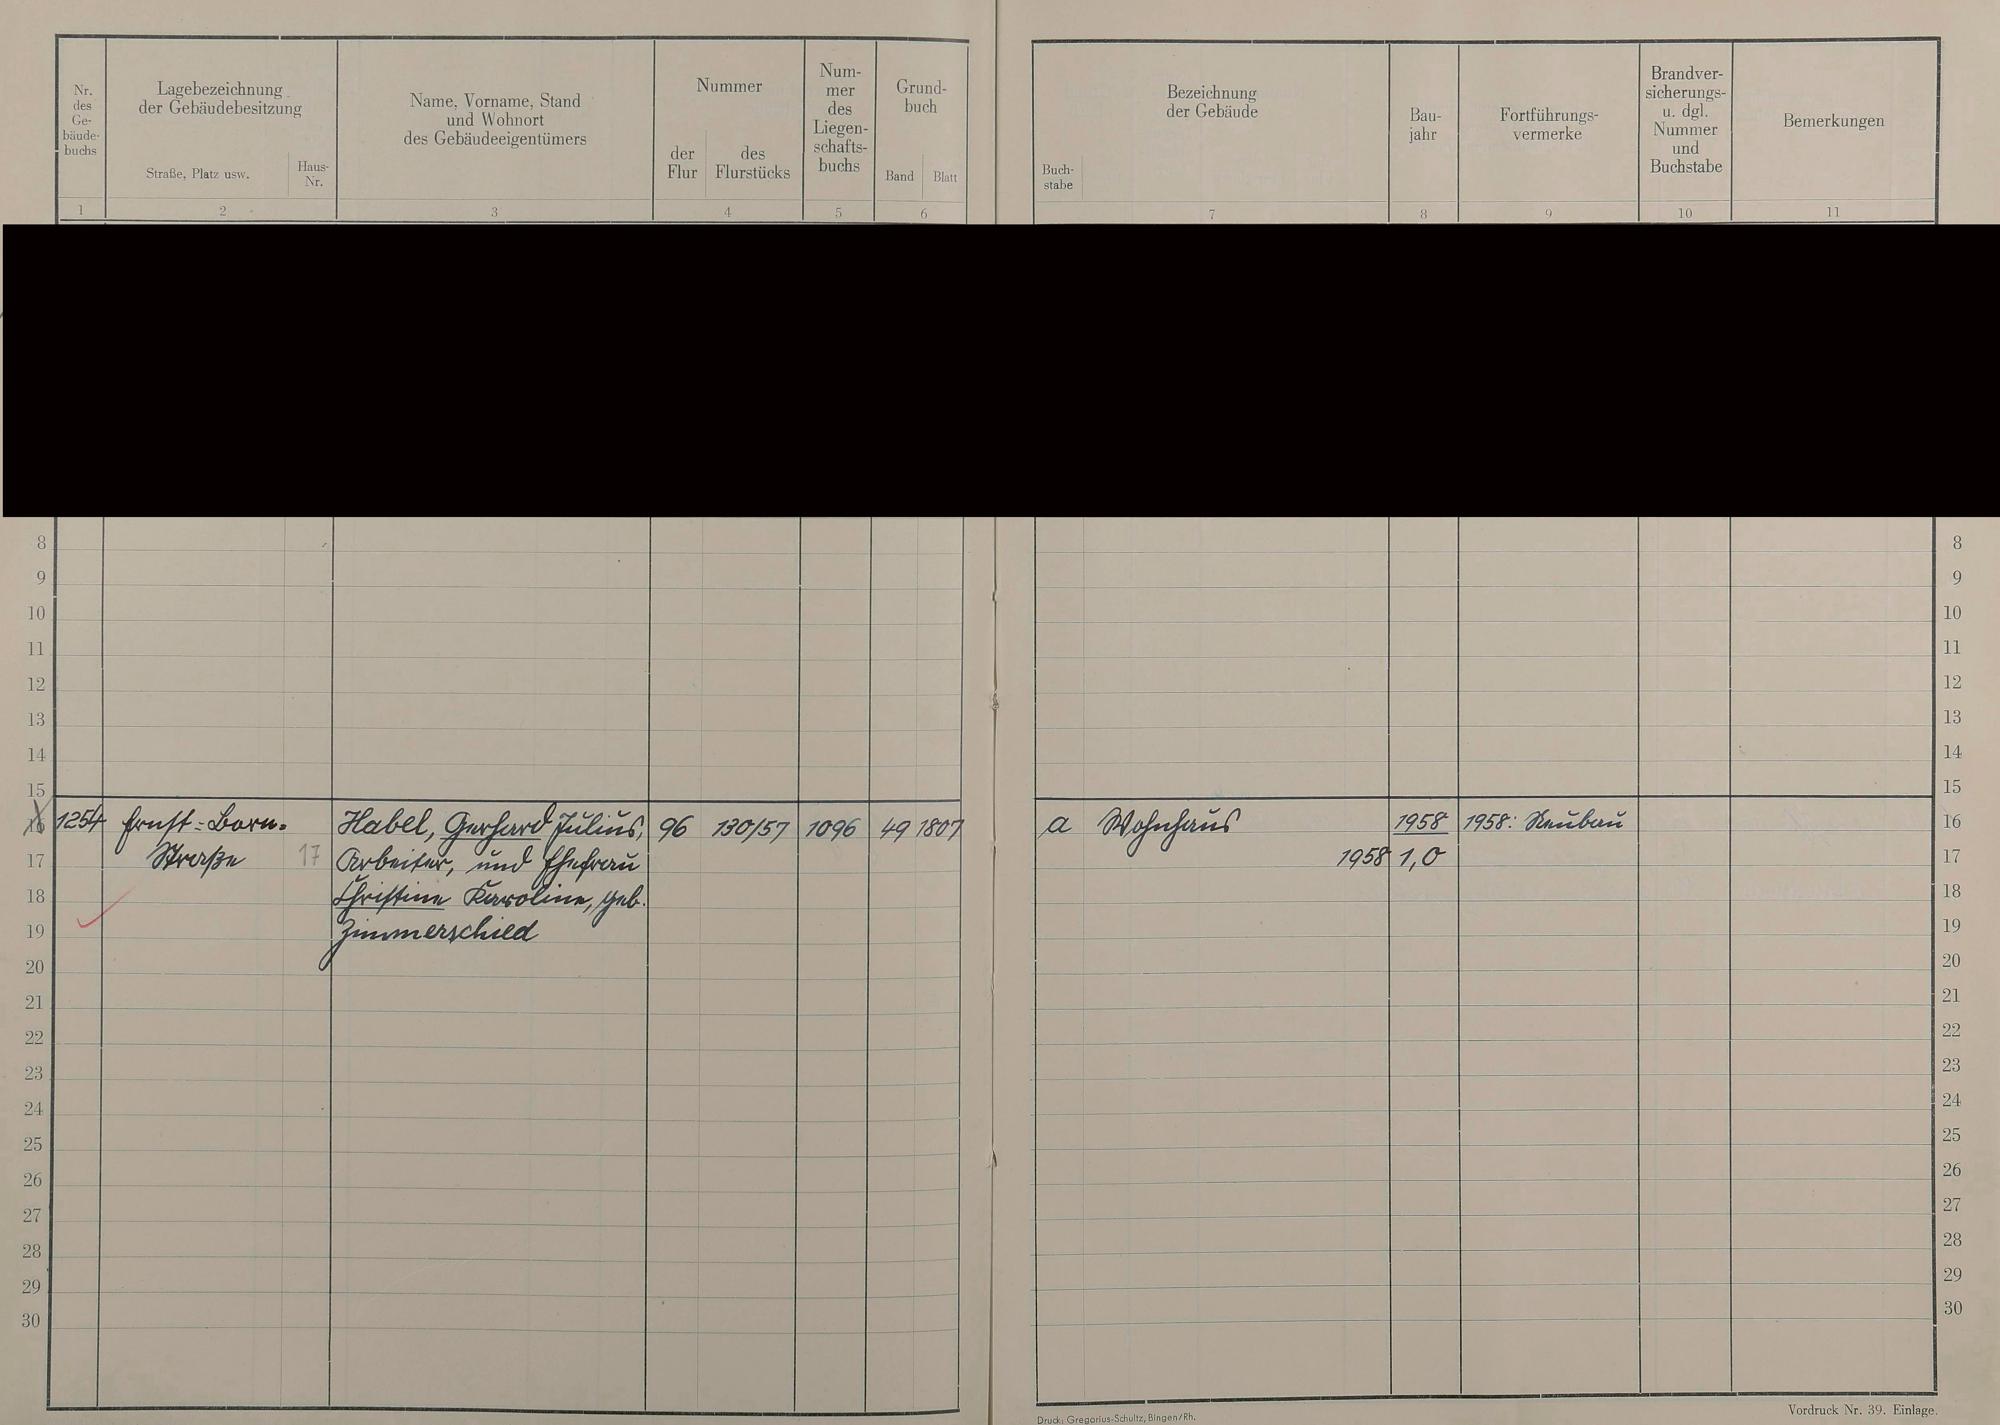 Nr. des Ge- bäude- buchs
Lagebezeichnung der Gebäudebesitzung
Straße, Platz usw.
Haus- Nr.
Name, Vorname, Stand und Wohnort des Gebäudeeigentümers
Nummer
der Flur
des Flurstücks
Num- mer des Liegen- schafts- buchs
Grund- buch
Band
Blatt
Buch- stabe
Bezeichnung der Gebäude
Bau- jahr
Fortführungs- vermerke
Brandver- sicherungs- u. dgl. Nummer und Buchstabe
Bemerkungen
1 2 3 4 5 6 7 8 9 10 11
8 8
9 9
10 10
11 11
12 12
13 13
14 14
15 15
16 1254 Ernst-Born- Habel, Gerhard Julius, 96 130/57 1096 49 1807 a Wohnhaus 1958 1958: Neubau 16
17 Straße 17 Arbeiter, und Ehefrau 1958 1,0 17
18 Christine Karoline, geb. 18
19 Zimmerschied 19
20 20
21 21
22 22
23 23
24 24
25 25
26 26
27 27
28 28
29 29
30 30
Druck: Gregorius-Schultz, Bingen/Rh.
Vordruck Nr. 39. Einlage.